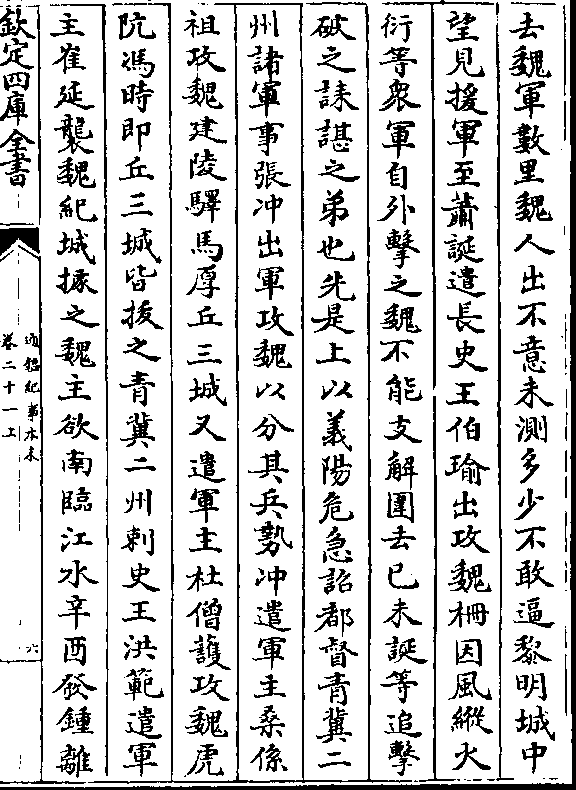 去魏軍數里魏人出不意未測多少不敢逼黎明城中
望見援軍至蕭誕遣長史王伯瑜出攻魏柵因風縱火
衍等衆軍自外擊之魏不能支解圍去已未誕等追擊
破之誄諶之弟也先是上以義陽危急詔都督青冀二
州諸軍事張冲出軍攻魏以分其兵勢冲遣軍主桑係
祖攻魏建陵驛馬厚丘三城又遣軍主杜僧護攻魏虎
阬馮時即丘三城皆拔之青冀二州刺史王洪範遣軍
主崔延襲魏紀城據之魏主欲南臨江水辛酉發鍾離
欽定四庫全書
通鑑紀事本末
卷二十一上
六